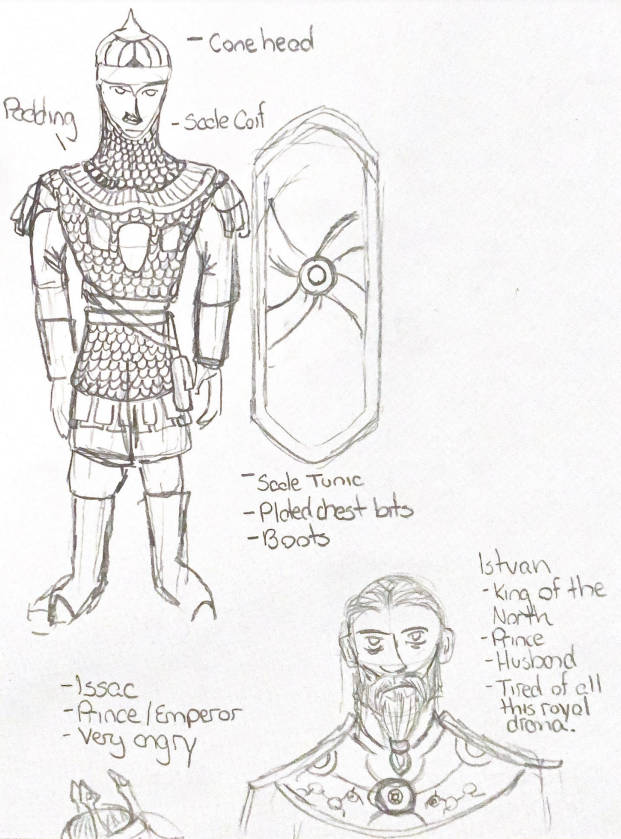 - Conehead
Padding
- Scale Coif
- Scale Tunic
- Plated chest bits
- Boots
Istvan
- King of the
North
- Prince
- Husband
- Tired of all
this royal
drama.
- Issac
- Prince/Emperor
- Very angry